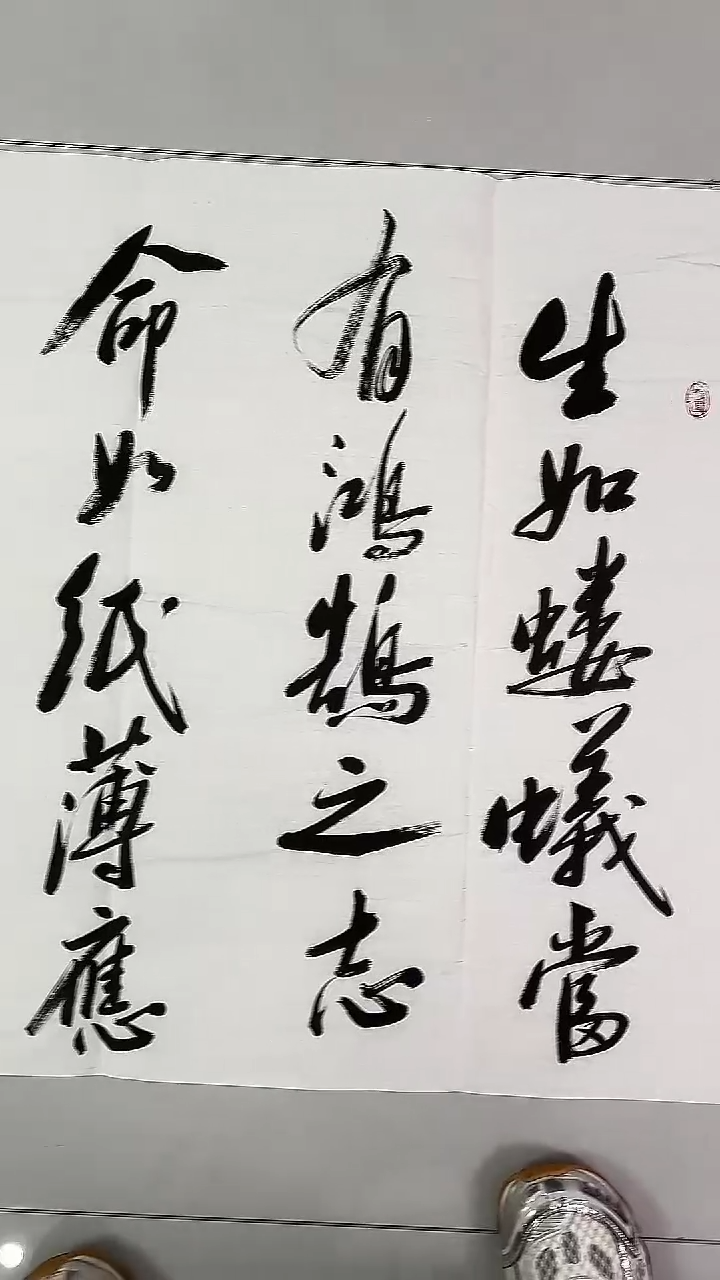 生如螻蟻當
有鴻鵠之志
命如紙薄應